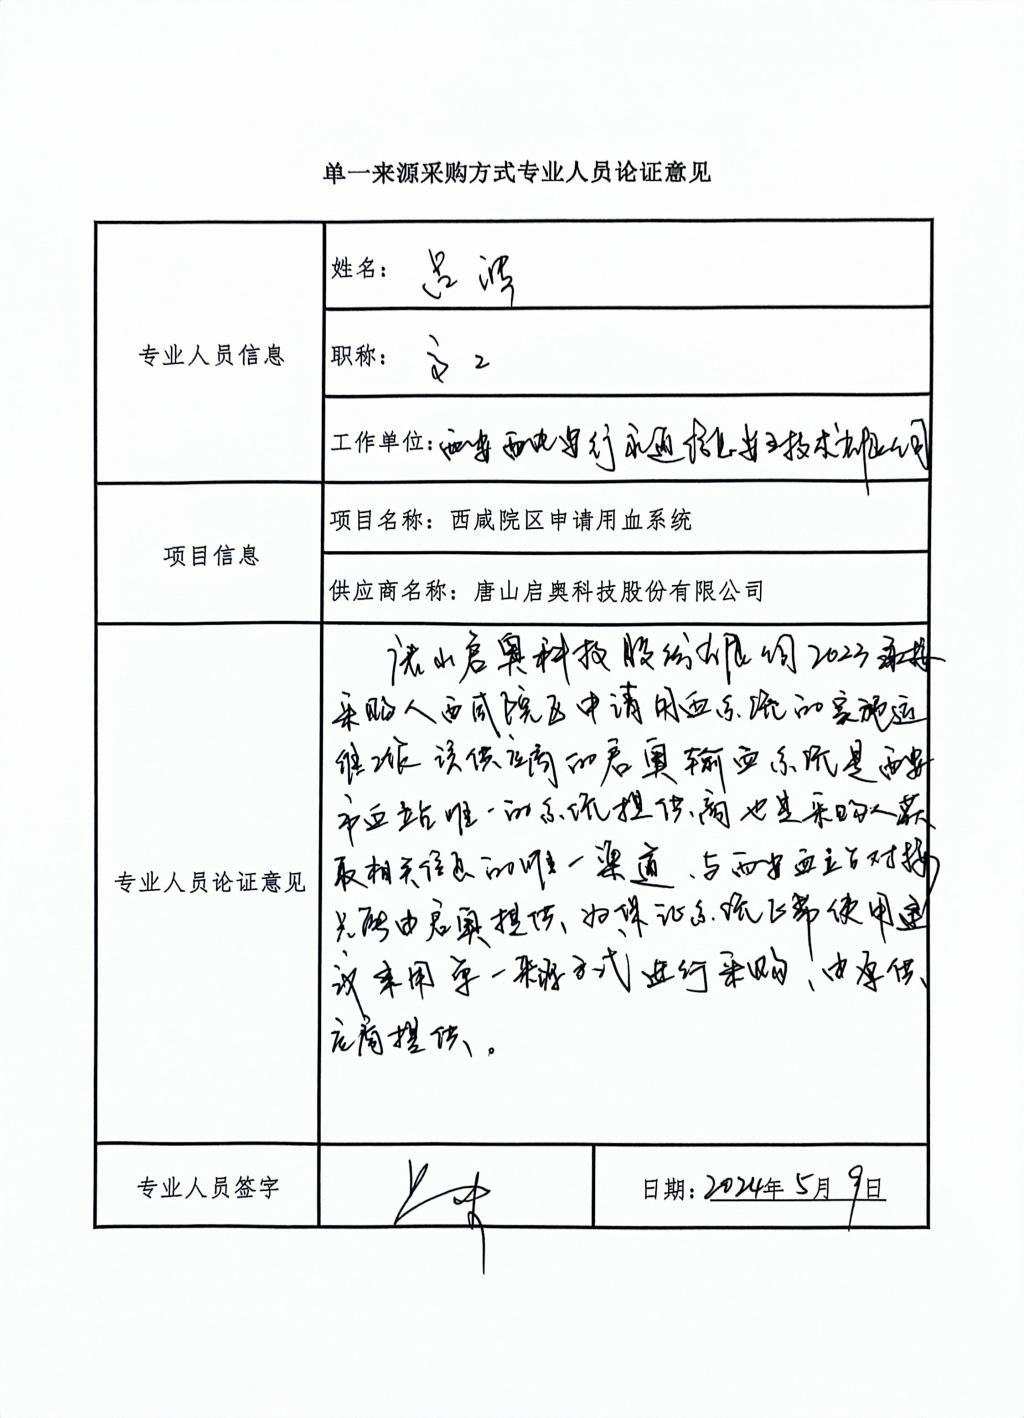 单一来源采购方式专业人员论证意见
专业人员信息
姓名：吕波
职称：高工
工作单位：西安西电安行永通信息安全技术有限公司
项目信息
项目名称：西咸院区申请用血系统
供应商名称：唐山启奥科技股份有限公司
专业人员论证意见
唐山启奥科技股份有限公司2023承接
采购人西咸院区申请用血系统的实施运
维工作 该供应商的启奥输血系统是西安
市血站唯一的系统提供商也是采购人获
取相关信息的唯一渠道、与西安血站对接
只能由启奥提供、为保证系统正常使用建
议采用单一来源方式进行采购、由原供
应商提供。
专业人员签字
日期：2024年5月9日